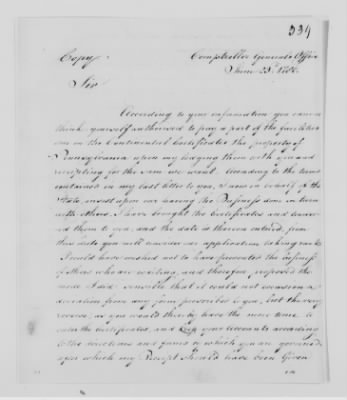 334
Copy
Comptroller General's Office
June 23d 1786.
Sir
According to your information you cannot
think yourself authorised to pay a part of the facilities
due on the Continental Certificates the property of
Pennsylvania upon my lodging them with you and
receipting for the sum we want. According to the terms
contained in my last letter to you, I now in behalf of the
State, insist upon our having the Business done in turn
with others. I have brought the Certificates and tender
ed them to you, and the date is thereon entered, from
this date you will consider our application taking rank.
I could have wished not to have prevented the business
of those who are waiting, and therefore proposed the
mode I did, sensible that it could not occasion a
deviation from any form prescribed to you, but the very
reverse, as you would thereby have the more time to
enter the Certificates, and keep your accounts according
to the directions and forms by which you are governed
after which my Receipt should have been given